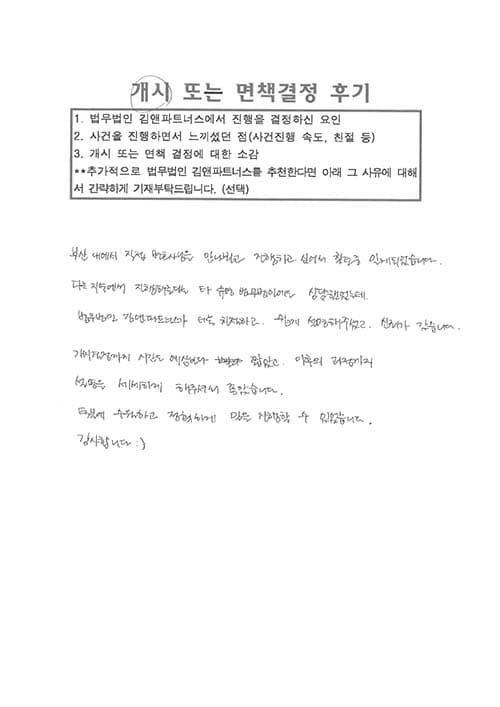 개시 또는 면책결정 후기
1. 법무법인 김앤파트너스에서 진행을 결정하신 요인
2. 사건을 진행하면서 느끼셨던 점(사건진행 속도, 친절 등)
3. 개시 또는 면책 결정에 대한 소감
**추가적으로 법무법인 김앤파트너스를 추천한다면 아래 그 사유에 대해
서 간략하게 기재부탁드립니다. (선택)
부산 내에서 직접 변호사님을 만나뵙고 진행하고 싶어서 알게되었습니다.
다른 지역에서 진행해주는 타 유명 법무법인이랑도 상담했었는데.
법무법인 김앤파트너스가 더욱 친절하고. 쉽게 설명해주셨고. 신뢰가 갔습니다.
개시결정까지 시간도 예상보다 짧았고. 이후의 과정까지
설명을 세세하게 해주셔서 좋았습니다.
덕분에 수월하고 정확하게 진행할 수 있었습니다.
감사합니다 :)